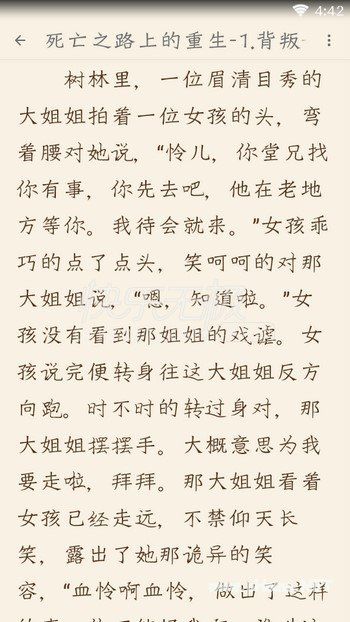 4:42
死亡之路上的重生-1.背叛
树林里，一位眉清目秀的
大姐姐拍着一位女孩的头，弯
着腰对她说，“怜儿，你堂兄找
你有事，你先去吧，他在老地
方等你。我待会就来。”女孩乖
巧的点了点头，笑呵呵的对那
大姐姐说，“嗯，知道啦。”女
孩没有看到那姐姐的戏谑。女
孩说完便转身往这大姐姐反方
向跑。时不时的转过身对，那
大姐姐摆摆手。大概意思为我
要走啦，拜拜。那大姐姐看着
女孩已经走远，不禁仰天长
笑，露出了她那诡异的笑
容，“血怜啊血怜，做出了这样